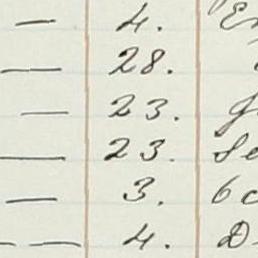 — 4.
— 28.
— 23.
— 23. Se
— 3. 6
— — 4. D